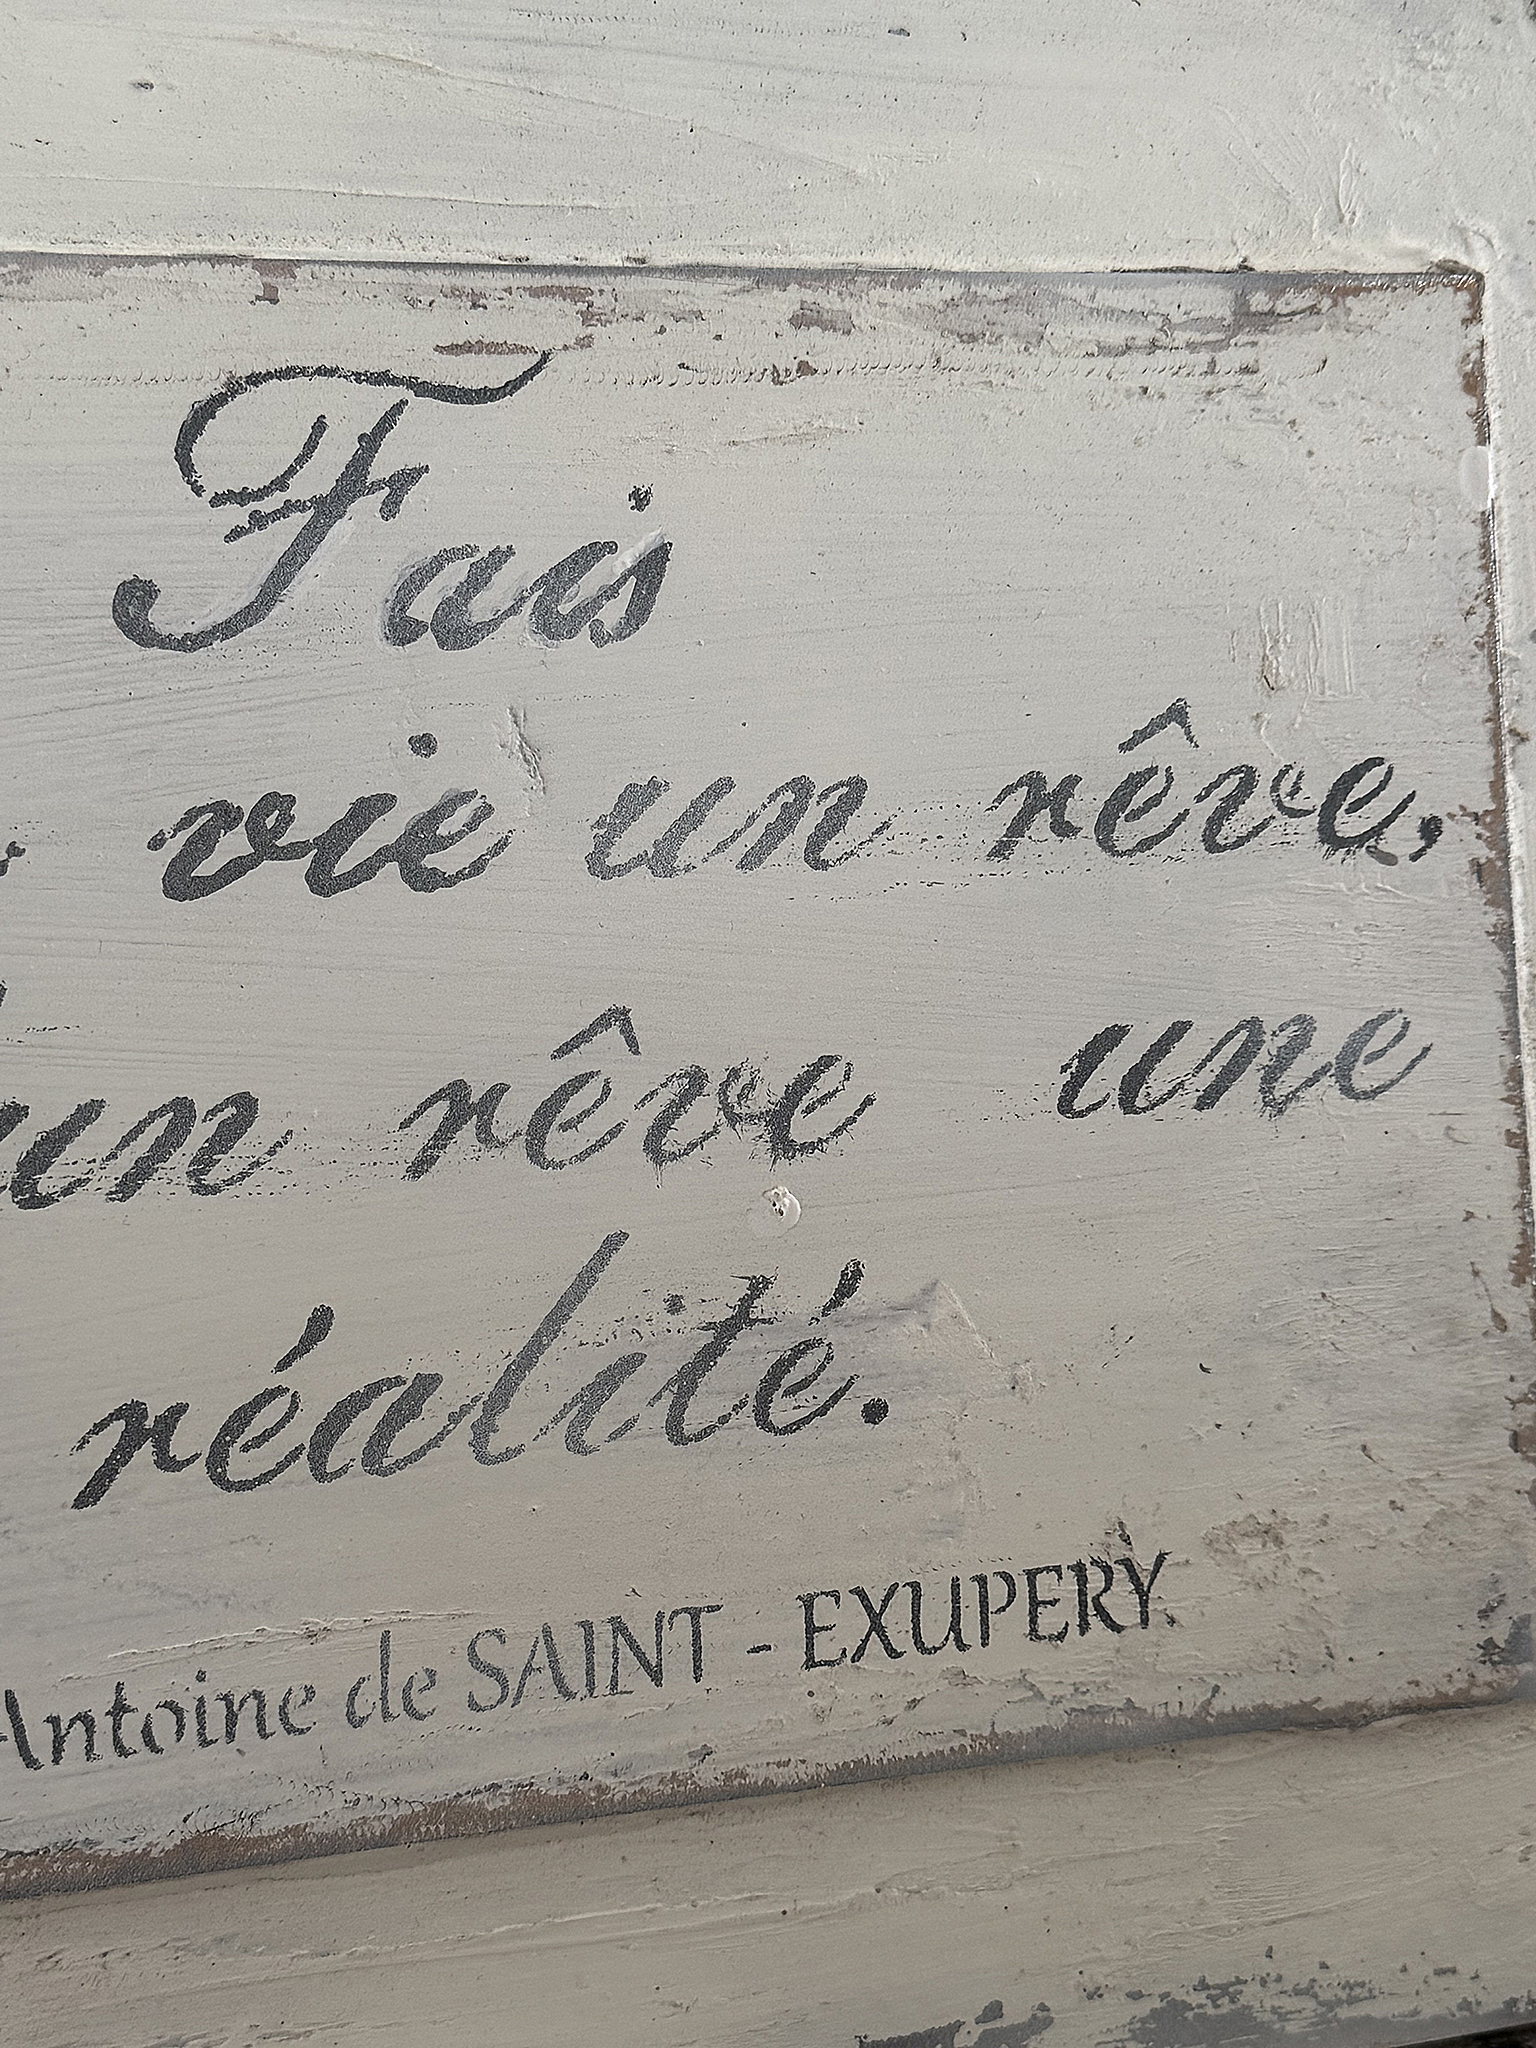 Fais
vie un rêve,
un rêve une
réalité.
Antoine de SAINT - EXUPERY